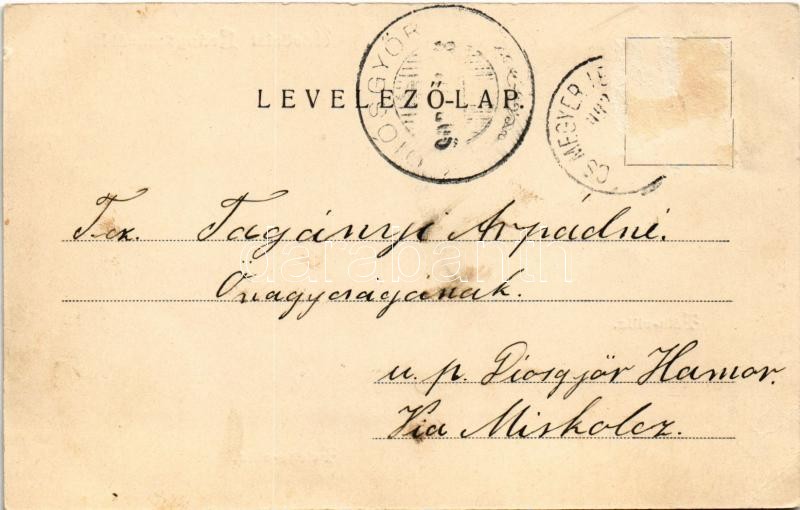 LEVELEZŐ-LAP.
DIÓSGYŐR
MEGYER
Tek. Tagányi Árpádné.
Őnagyságának.
u. p. Diosgyör Hamor.
Via Miskolcz.
darabanth